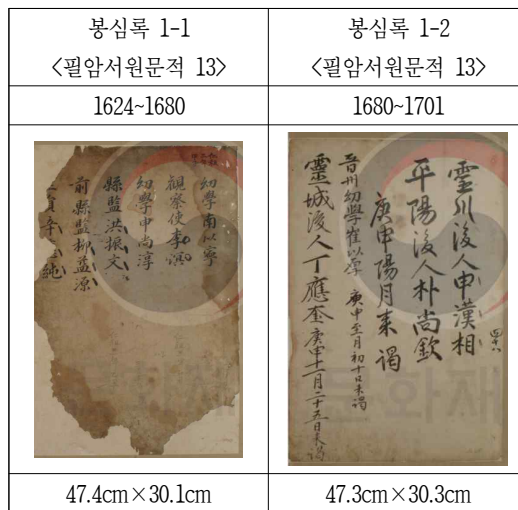 봉심록 1-1
<필암서원문적 13>
봉심록 1-2
<필암서원문적 13>
1624~1680
1680~1701
幼學南以寧
觀察使李溟
幼學申尚淳
縣監洪振文
前縣監柳益源
純
雲川後人申漢相
平陽後人朴尚欽
庚申陽月來謁
晉州幼學崔以厚 庚申至月初十日來謁
靈城後人丁應奎 庚申十一月二十五日來謁
문화재
47.4cm×30.1cm
47.3cm×30.3cm